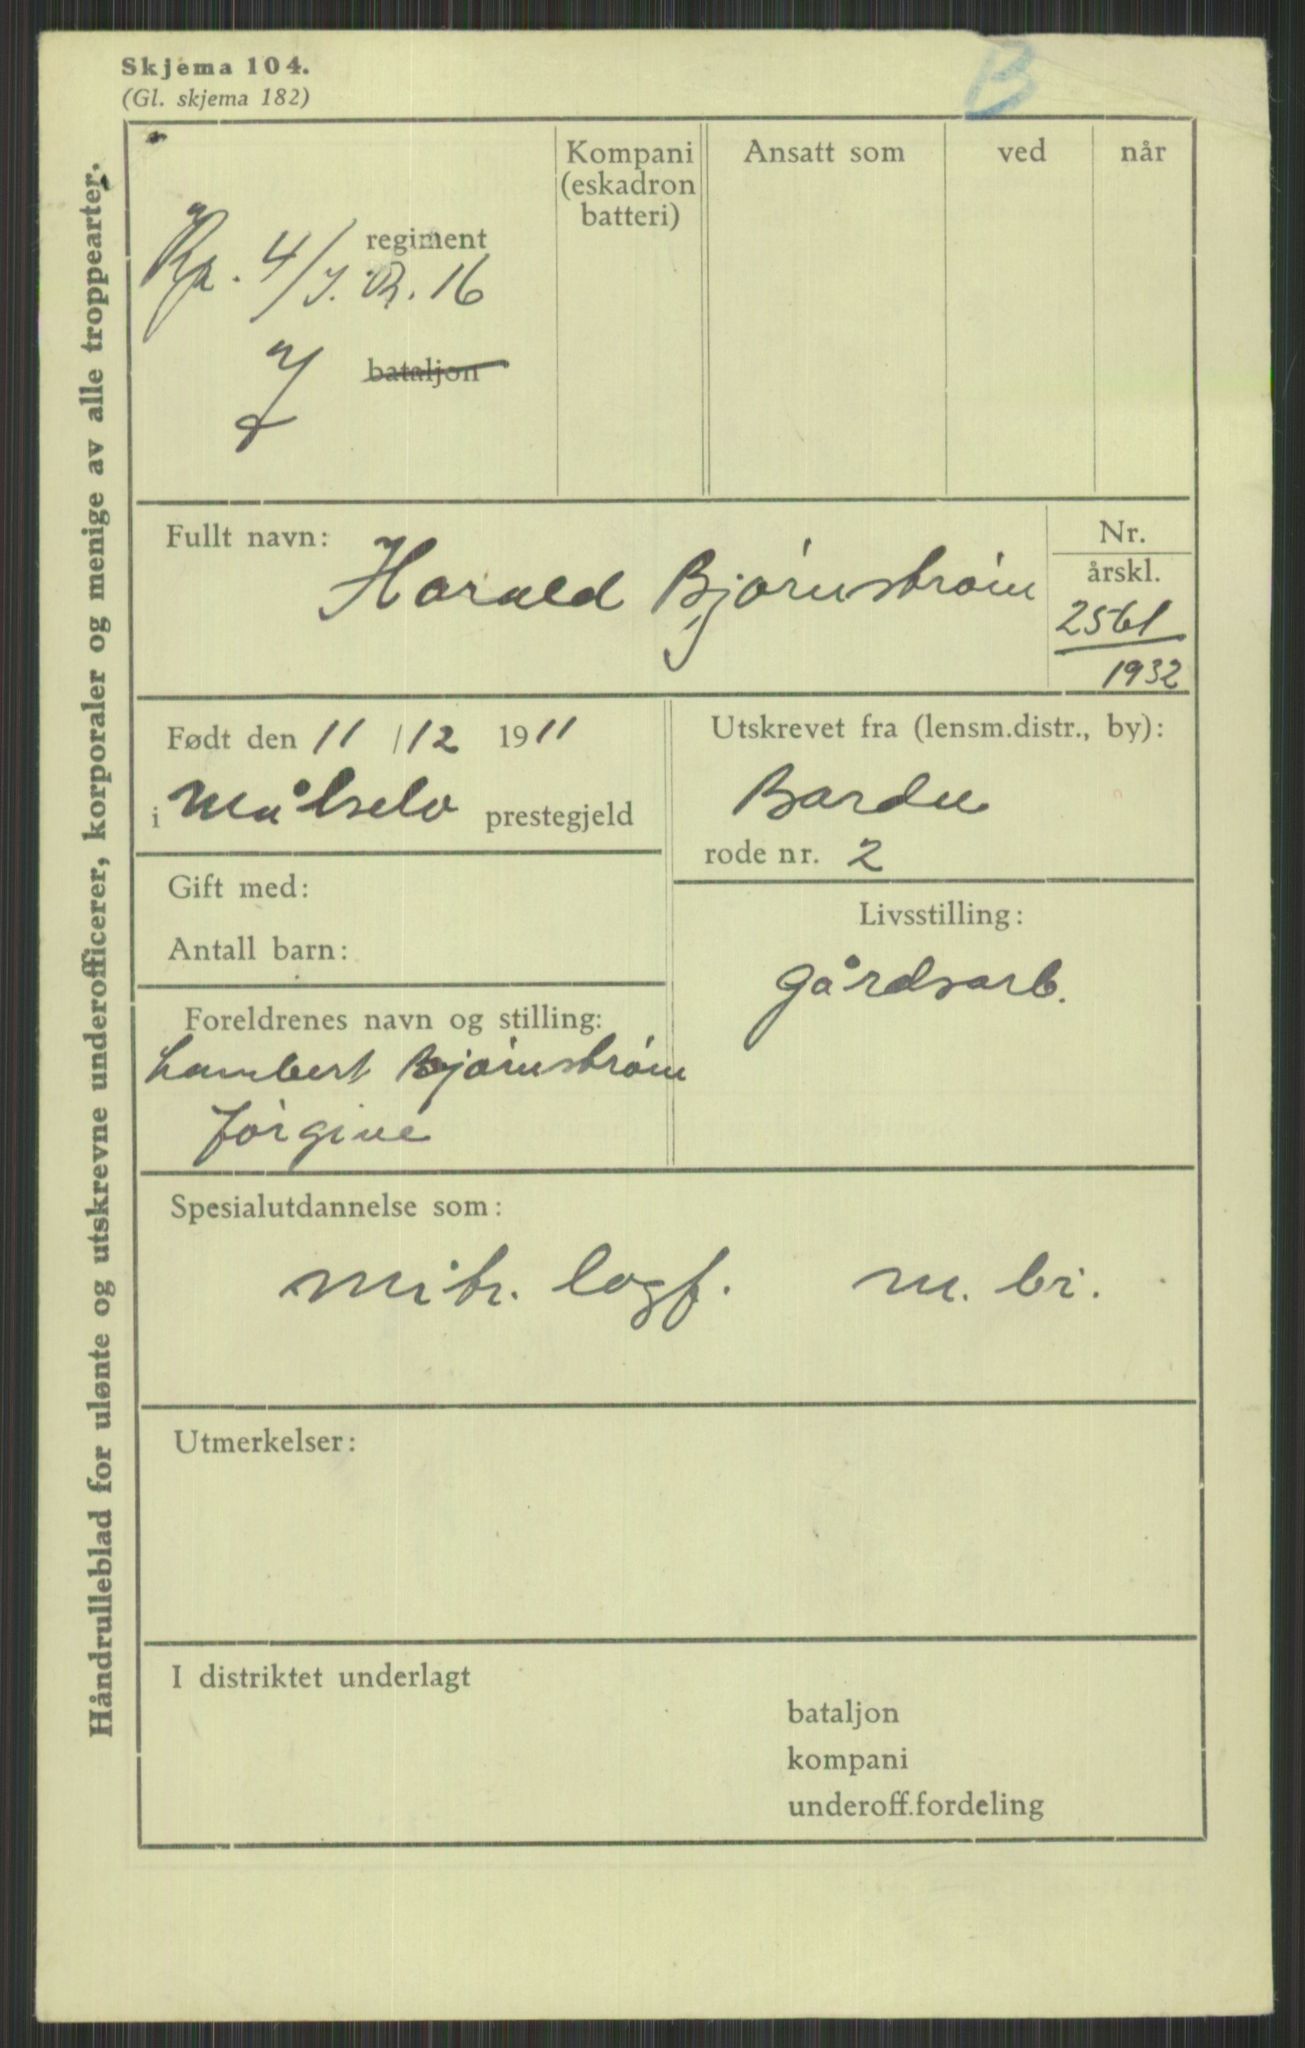 B
Skjema 104.
(Gl. skjema 182)
Håndrulleblad for ulønte og utskrevne underofficerer, korporaler og menige av alle troppearter.
Kompani
(eskadron
batteri)
Ansatt som
ved
når
regiment
Kp. 4/I.R. 16
bataljon
Fullt navn: Harald Bjørnstrøm
Nr.
årskl.
2561
1932
Født den 11/12 1911
i Målselv prestegjeld
Utskrevet fra (lensm.distr., by):
Bardu
rode nr. 2
Gift med:
Antall barn:
Livsstilling:
Gårdsarb.
Foreldrenes navn og stilling:
Lambert Bjørnstrøm
Jørgine
Spesialutdannelse som:
mitr. lagf. m. br.
Utmerkelser:
I distriktet underlagt
bataljon
kompani
underoff.fordeling